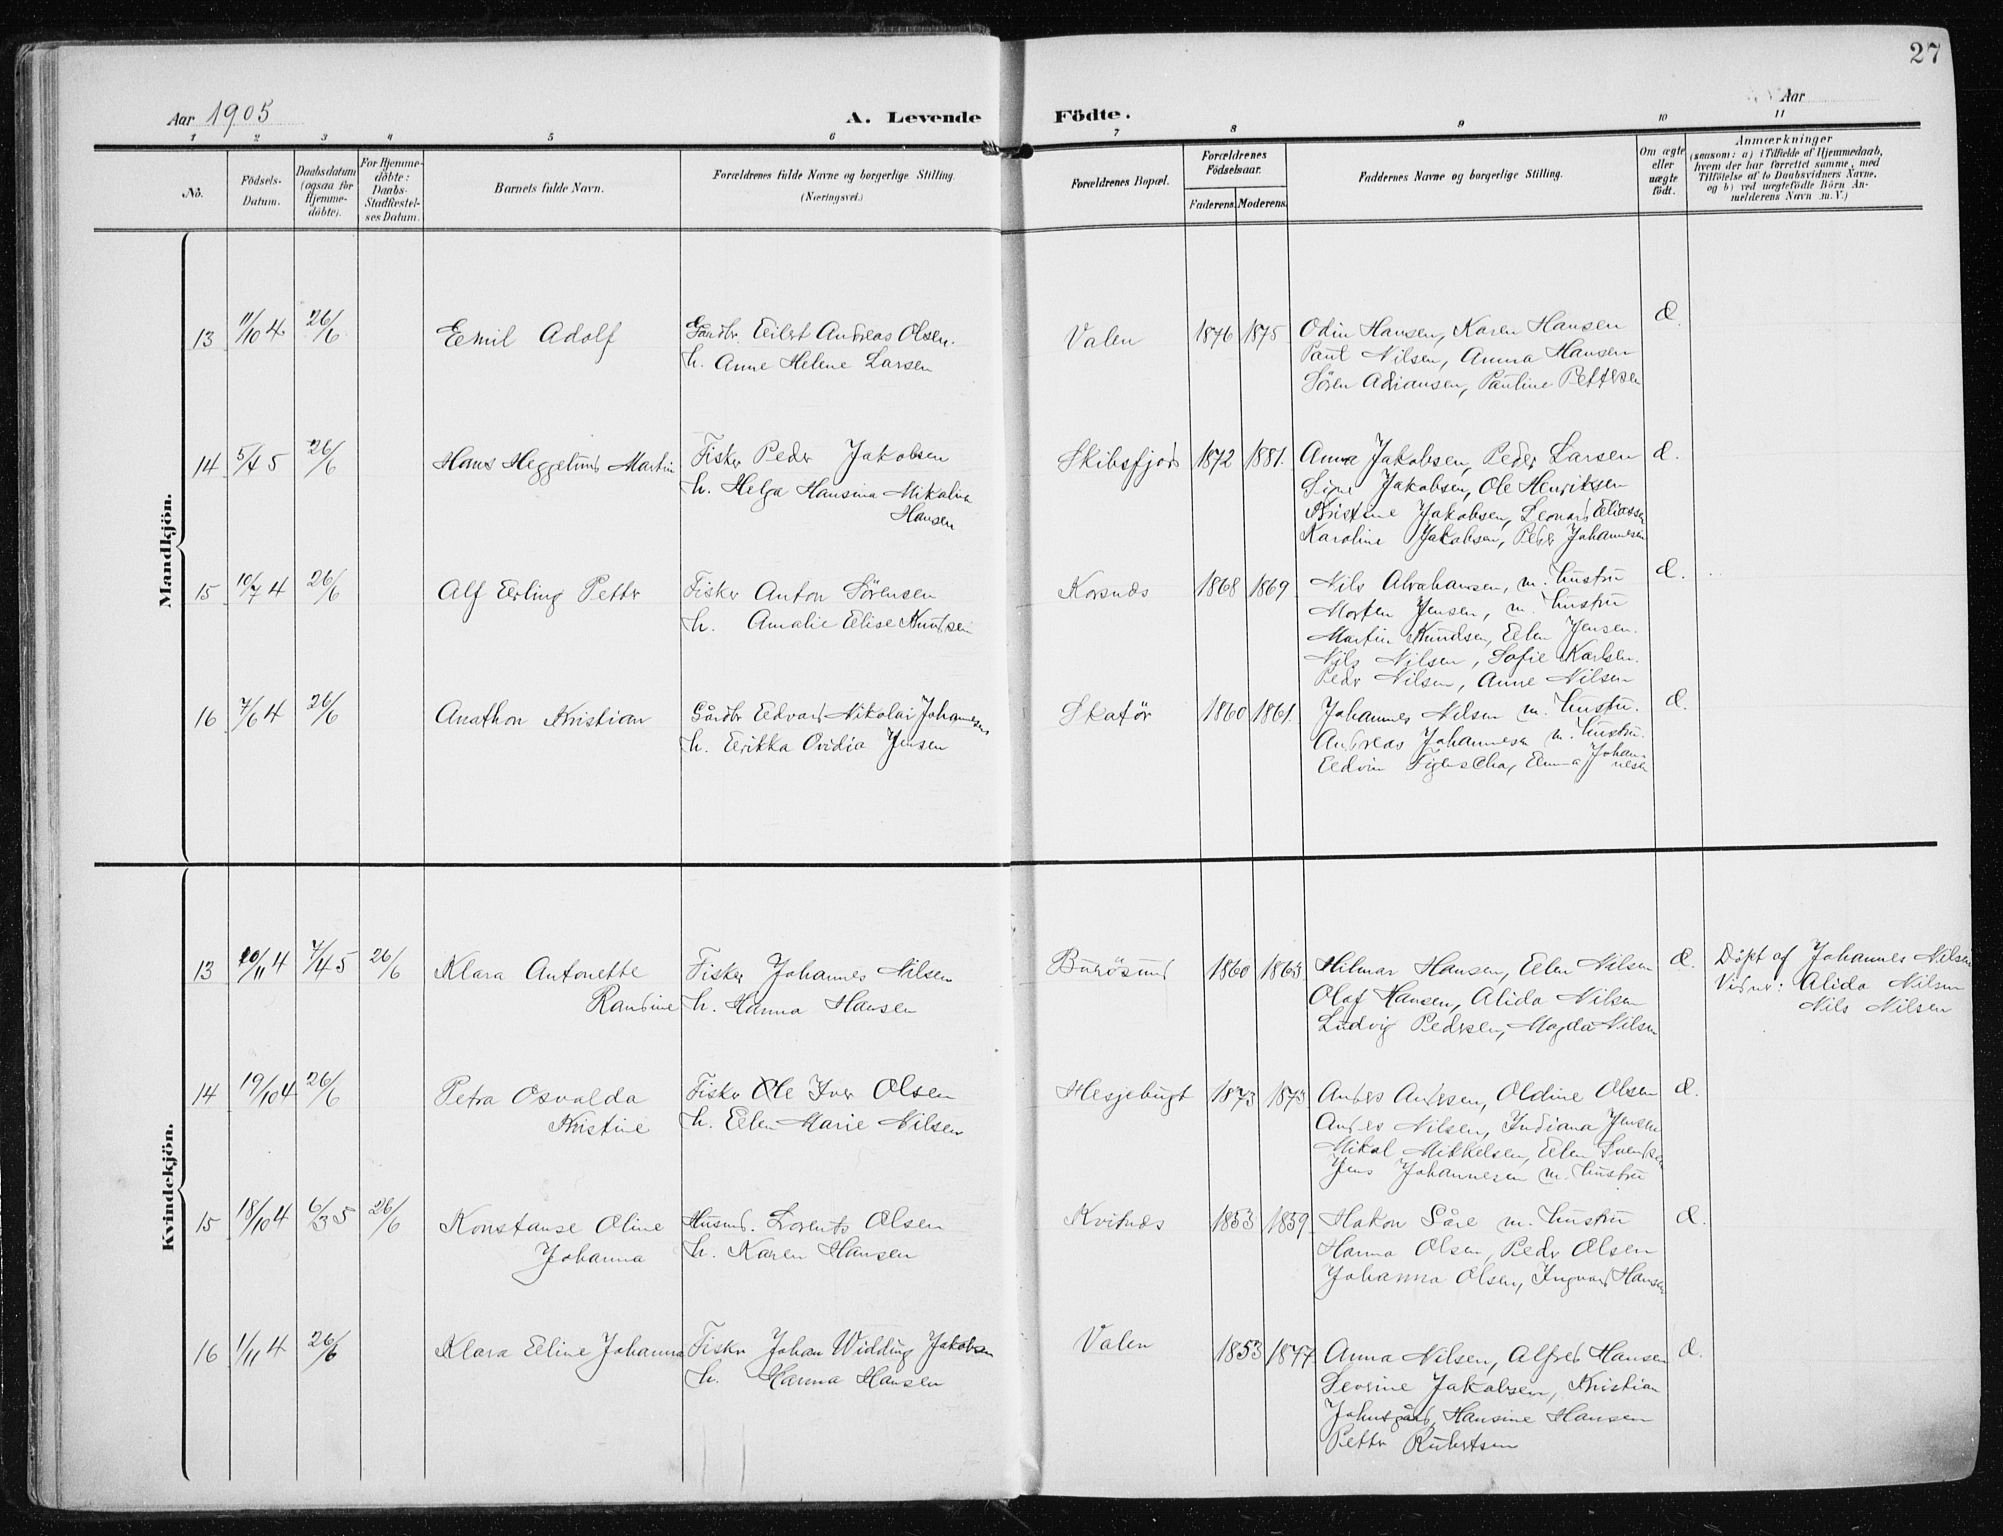 27
Aar 1905
A. Levende Födte.
Aar
1 2 3 4 5 6 7 8 9 10 11
No.
Födsels-Datum.
Daabsdatum (ogsaa for Hjemme-döbte).
For Hjemme-döbte: Daabs-Stadfæstel-ses Datum.
Barnets fulde Navn.
Forældrenes fulde Navne og borgerlige Stilling.
(Næringsvei.)
Forældrenes Bopæl.
Forældrenes Födselsaar.
Faderens. Moderens.
Faddernes Navne og borgerlige Stilling.
Om ægte eller uægte födt.
Anmærkninger
(saasom: a) i Tilfælde af Hjemmedaab,
hvem der har forrettet samme, med
Tilföielse af to Daabsvidners Navne,
og b) ved uægtefödte Börn An-
melderens Navn m. V.)
Mandkjön.
13 11/10 4 26/6 Emil Adolf Gårdbr. Eilert Andreas Olsen. Valen 1876 1875 Odin Hansen, Karen Hansen Æ.
h. Anne Helene Larsen Paul Nilsen, Anna Hansen
Sören Adriansen, Pauline Pettersen
14 5/4 5 26/6 Hans Heggelund Martin Fisker Peder Jakobsen Skibsfjord 1872 1881. Anna Jakobsen, Peder Larsen Æ.
h. Helga Hansina Mikalina Signe Jakobsen, Ole Henriksen
Hansen Kristine Jakobsen, Leonard Eliassen
Karoline Jakobsen, Peder Johannesen
15 10/7 4 26/6 Alf Erling Petter Fisker Anton Sörensen Korsnes 1868 1869 Nils Abrahamsen, m. hustru Æ.
h. Amalie Elise Knudsen Morten Jensen, m. hustru
Martin Knudsen, Elen Jensen.
Nils Nilsen, Sofie Karlsen.
Peder Nilsen, Anne Nilsen
16 7/6 4 26/6 Anathon Kristian Gårdbr Edvard Nikolai Johannesen Skatör 1860 1861. Johannes Nilsen m. hustru. Æ.
h. Erikka Ovidia Jensen Andreas Johannesen m. hustru.
Edvin Figenschau, Emma Johan-
nesen
Kvindekjön.
13 10/11 4 7/4 5 26/6 Klara Antonette Fisker Johannes Nilsen Burösund 1860 1863 Hilmar Hansen, Elen Nilsen Æ. Döpt af Johannes Nilsen
Randine h. Hanna Hansen Olaf Hansen, Alida Nilsen Vidner: Alida Nilsen
Ludvig Pedersen, Magda Nilsen Nils Nilsen
14 19/10 4 26/6 Petra Osvalda Fisker Ole Iver Olsen Hesjebugt 1873 1873 Anders Andersen, Oldine Olsen Æ.
Kristine h. Elen Marie Nilsen Anders Nilsen, Indiana Jensen
Mikal Mikkelsen, Elen Svendsen
Jens Johannesen m. hustru
15 18/10 4 6/3 5 26/6 Konstanse Oline Husmd. Lorents Olsen Kvitnes 1853 1859 Hakon Såre m. hustru Æ.
Johanna h. Karen Hansen Hanna Olsen, Peder Olsen
Johanna Olsen, Ingvard Hansen
16 1/11 4 26/6 Klara Eline Johanna Fisker Johan Widding Jakobsen Valen 1853 1877 Anna Nilsen, Alfred Hansen Æ.
h. Hanna Hansen Severine Jakobsen, Kristian
Johnsgård, Hansine Hansen
Petter Rubertsen